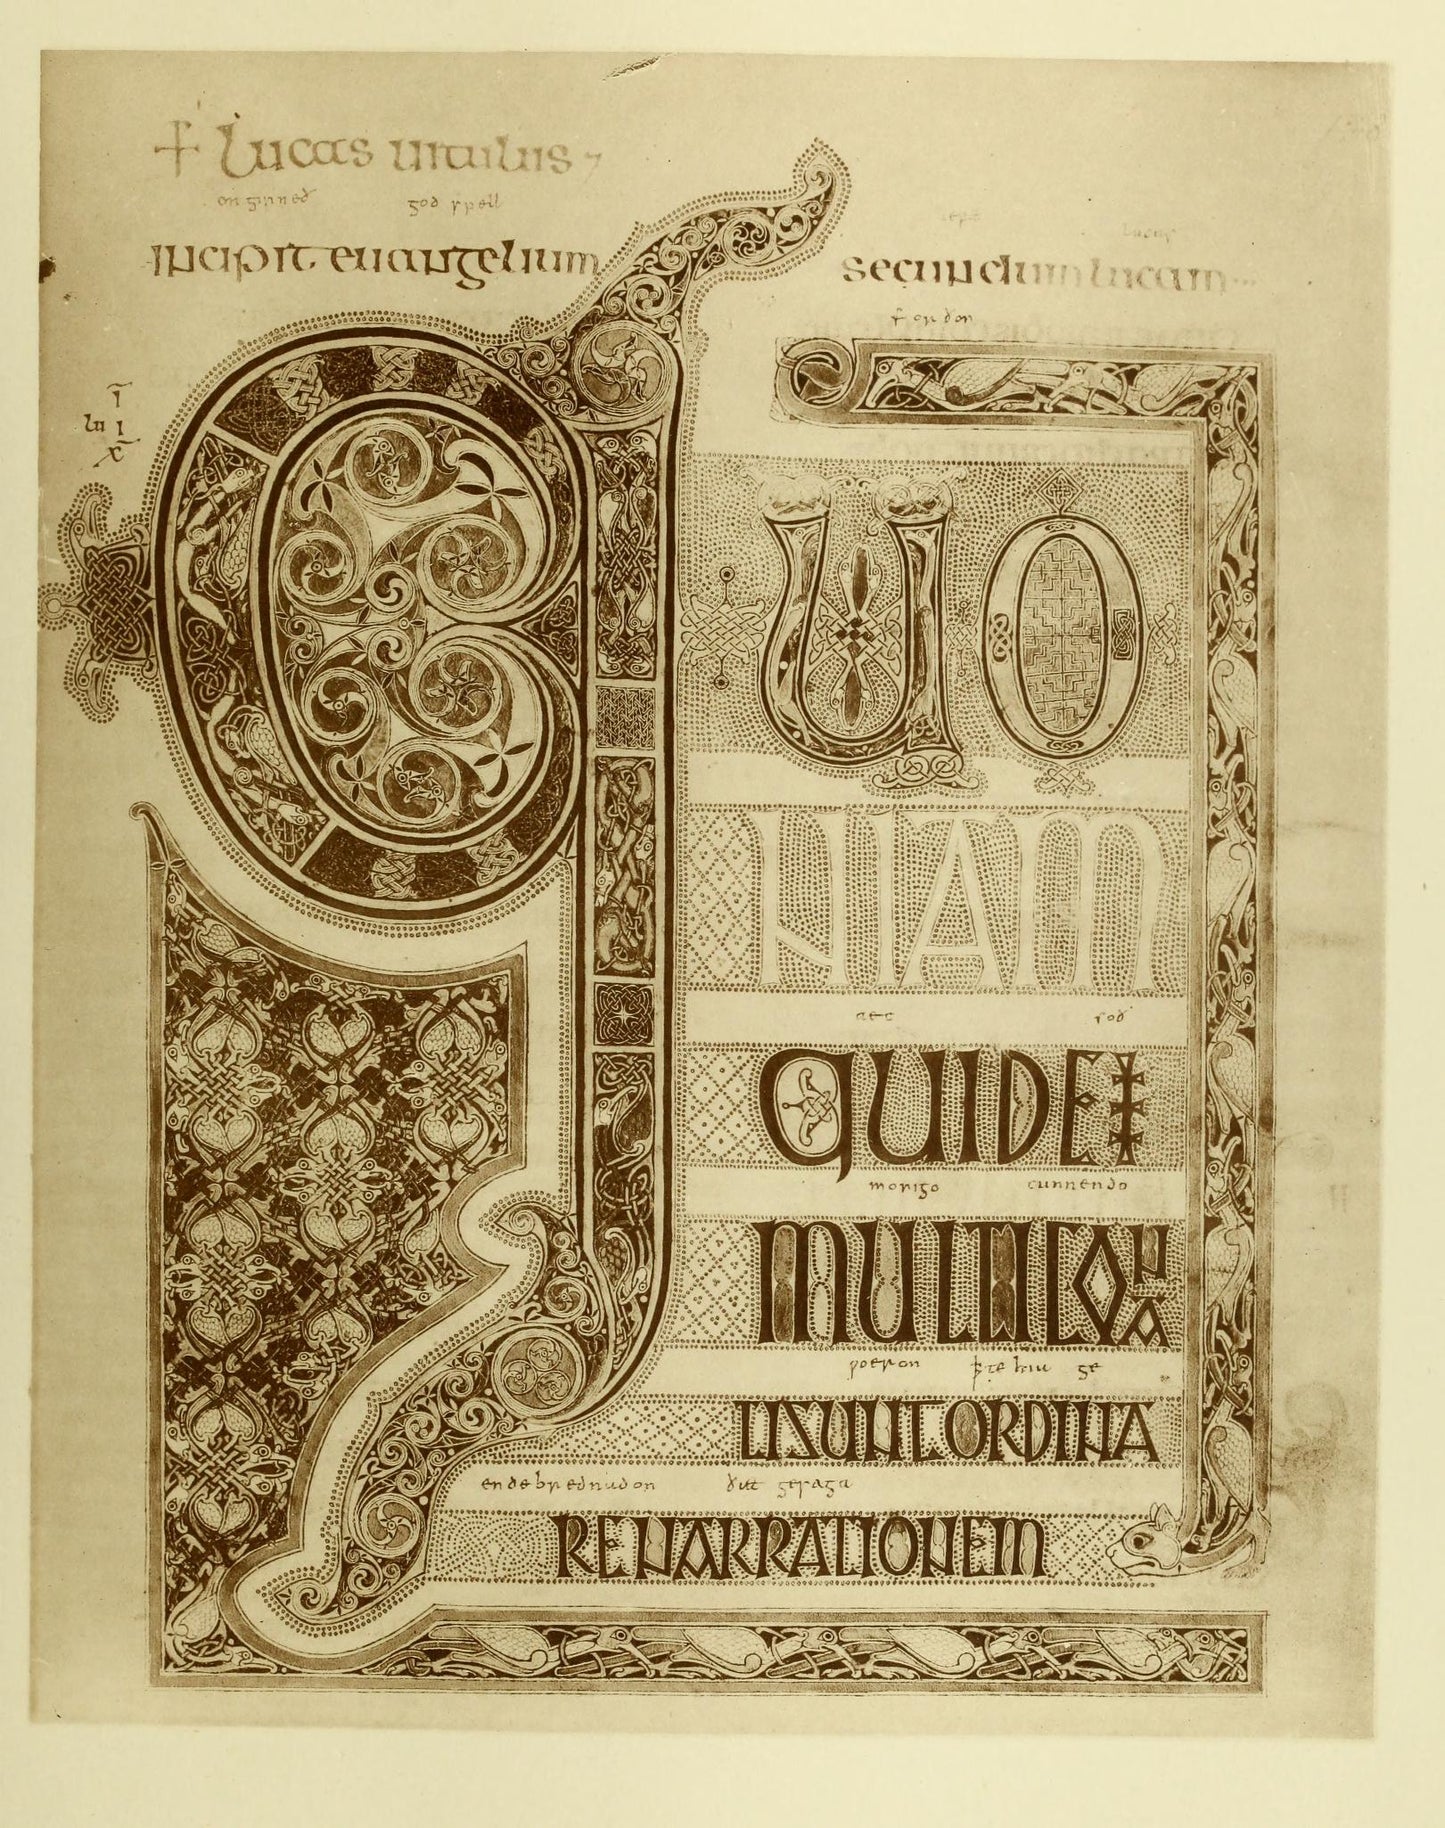 + Lucas uitulus
onginned godspell
incipit euangelium secundum lucam
fordon
lu
QUO
NIAM
aec
QUIDE
monigo cunnendo
MULTI CONA
poeron þte hiu ge
TI SUNT ORDINA
endebrednudon ðut geraga
RE NARRATIONEM